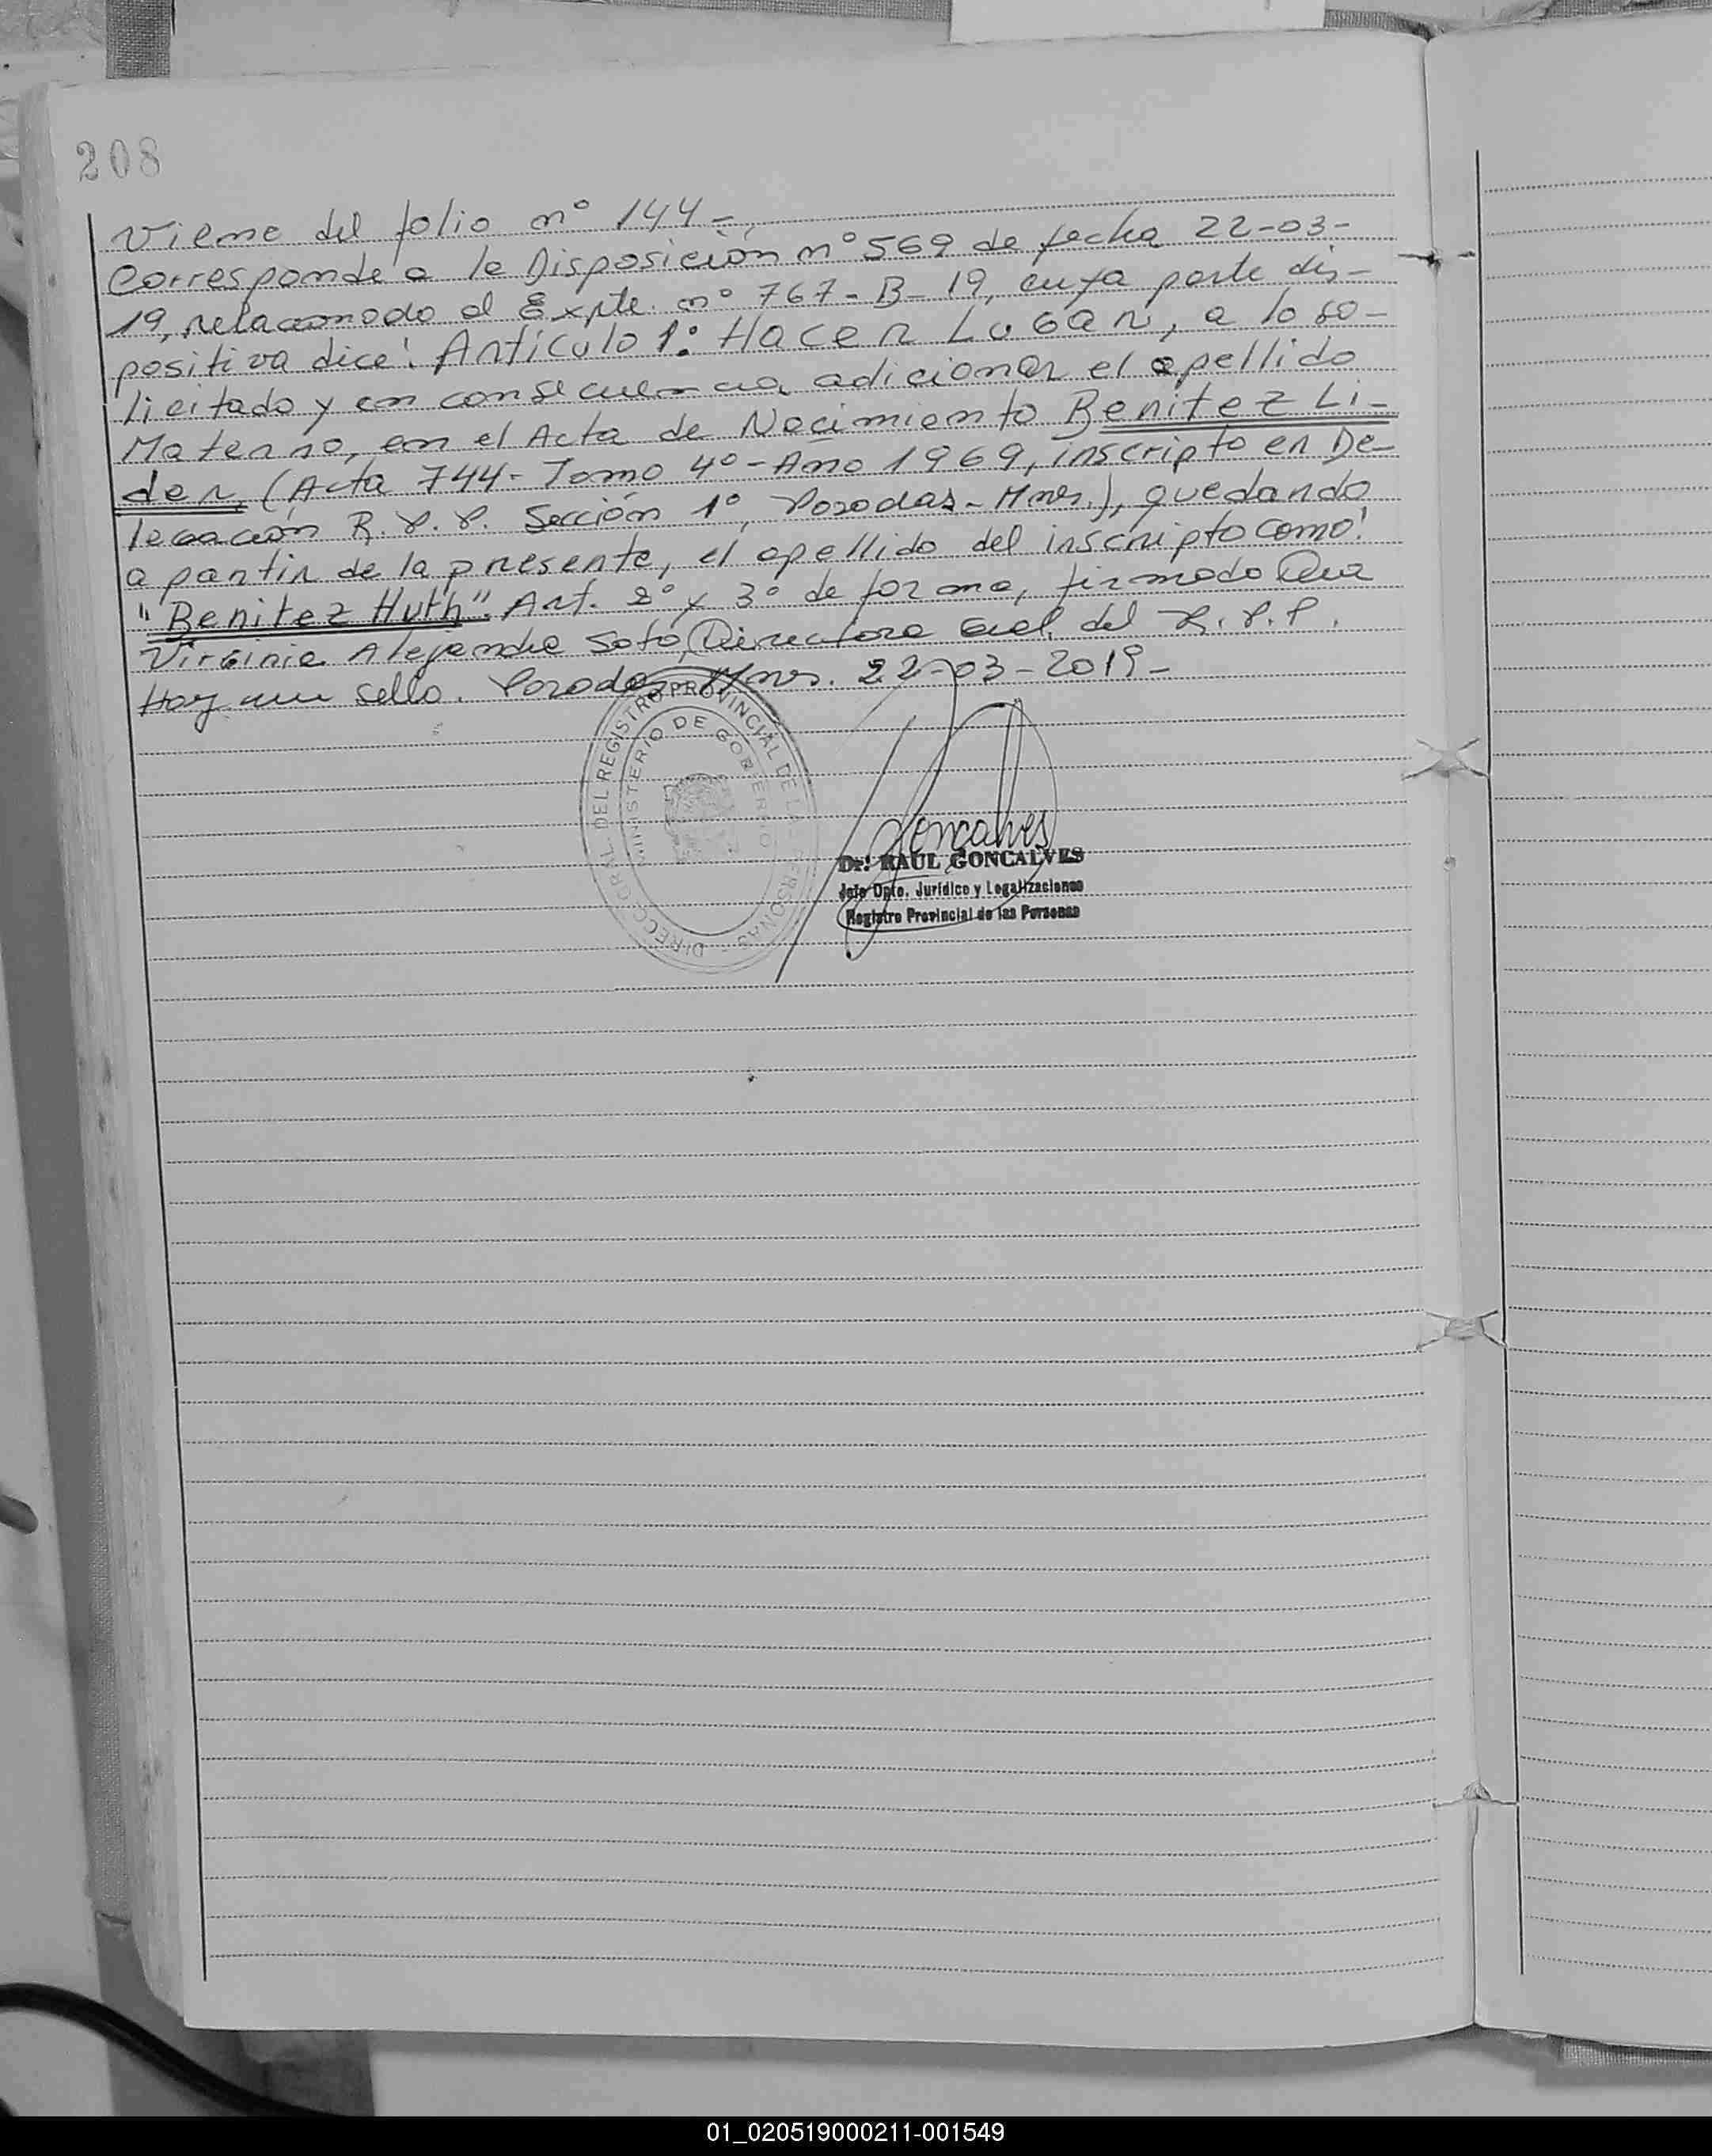 208
Viene del folio nº 144-
Corresponde a la Disposición nº 569 de fecha 22-03-
19, relacionado al Expte. nº 767-B-19, cuya parte dis-
positiva dice: Artículo 1º: Hacer Lugar, a lo so-
licitado y en consecuencia adicionar el apellido
Materno, en el Acta de Nacimiento Benitez Li-
der, (Acta 744- Tomo 4º-Año 1969, inscripto en De-
legación R.P.P. Sección 1º, Posadas-Mnes.), quedando
a partir de la presente, el apellido del inscripto como:
"Benitez Huth". Art. 2º y 3º de forma, firmado Dra
Virginia Alejandra Soto, Directora Gral. del R.P.P.
Hay un sello. Posadas, Mnes. 22-03-2019-
DIRECC. GRAL. DEL REGISTRO PROVINCIAL DE LAS PERSONAS -
MINISTERIO DE GOBIERNO
Goncalves
Dr. RAUL GONCALVES
Jefe Dpto. Jurídico y Legalizaciones
Registro Provincial de las Personas
01_020519000211-001549